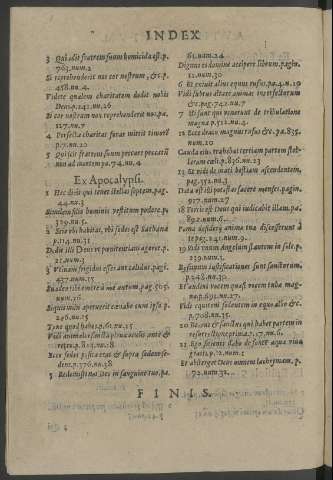 INDEX
3 Qui odit fratrem suum homicida est. p.
763. num. 2
Si reprehenderit nos cor nostrum, &c. p.
458. nu. 4
Videte qualem charitatem dedit nobis
Deus. p. 242. nu. 26
Si cor nostrum non reprehenderit nos. pa.
127. nu. 7
4 Perfecta charitas foras mittit timorẽ
p.7. nu. 6
5 Qui scit fratrem suum peccare peccatũ
non ad mortem pa. 74. nu. 4
Ex Apocalypsi.
1 Hec dicit qui tenet stellas septem. pag.
44. nu. 3
filio hominis vestitum podere. p.
329. nu. 5.
2 Scio vbi habitas, vbi sedes est Sathanæ
p. 114. nu. 31
Dedit illi Deus vt penitentiam ageret. p.
21. num. 3
3 Vtinam frigidus esses aut calidus. pagi.
437. num. 15
Suadeo tibi emere à me aurum. pag. 505.
num. 16
Siquis mihi aperuerit cœnabo cum ipso. p.
246. nu. 25
Tene quod habes. p. 61. nu. 15
4 Vidi animalia sancta plena oculis ante &
retro. p. 818. nu. 18
Ecce sedes posita erat & supra sedem sedens.
p. 776. nu. 38
5 Redemisti nos Deo in sanguine tuo. pa.
61. num. 24
Dignus es domine accipere librum. pagin.
12. num. 30
6 Et exiuit alius equus rufus. pa. 4. n. 19
Vidi subtus altare animas interfectorum
&c. pag. 742. nu. 7
7 Hi sunt qui venerunt de tribulatione
magna p. 512. nu. 4.
12 Ecce draco magnus rufus &c. p. 835.
num. 20
Cauda eius trahebat tertiam partem stellarum
cœli. p. 836. nu. 23
13 Et vidi de mari bestiam ascendentem.
pag. 552. nu. 3
Data est illi potestas facere menses. pagin.
927. num. 27
18 Fortis est Deus qui iudicabit illam. pa.
892. num. 6.
Poma desiderij animæ tuæ discesserunt à
te pag. 241. num. 9.
19 Vidi vnum Angelum stantem in sole. p.
239. num. 3.
Byssinum iustificationes sunt sanctorum.
p. 248. nu. 30.
Et audiui vocem quasi vocem tubæ magnæ
p. 691. nu. 27.
Vidi equitem sedentem in equo albo &c.
p. 708. nu. 35.
20 Beatus & sanctus qui habet partem in
resurrectione prima. 27. nu. 66.
21 Ego sitienti dabo de fonte aquæ viuæ
gratis. p. 12. num. 5
Et absterget Deus omnem lachrymam. p.
72. num. 32.
FINIS.